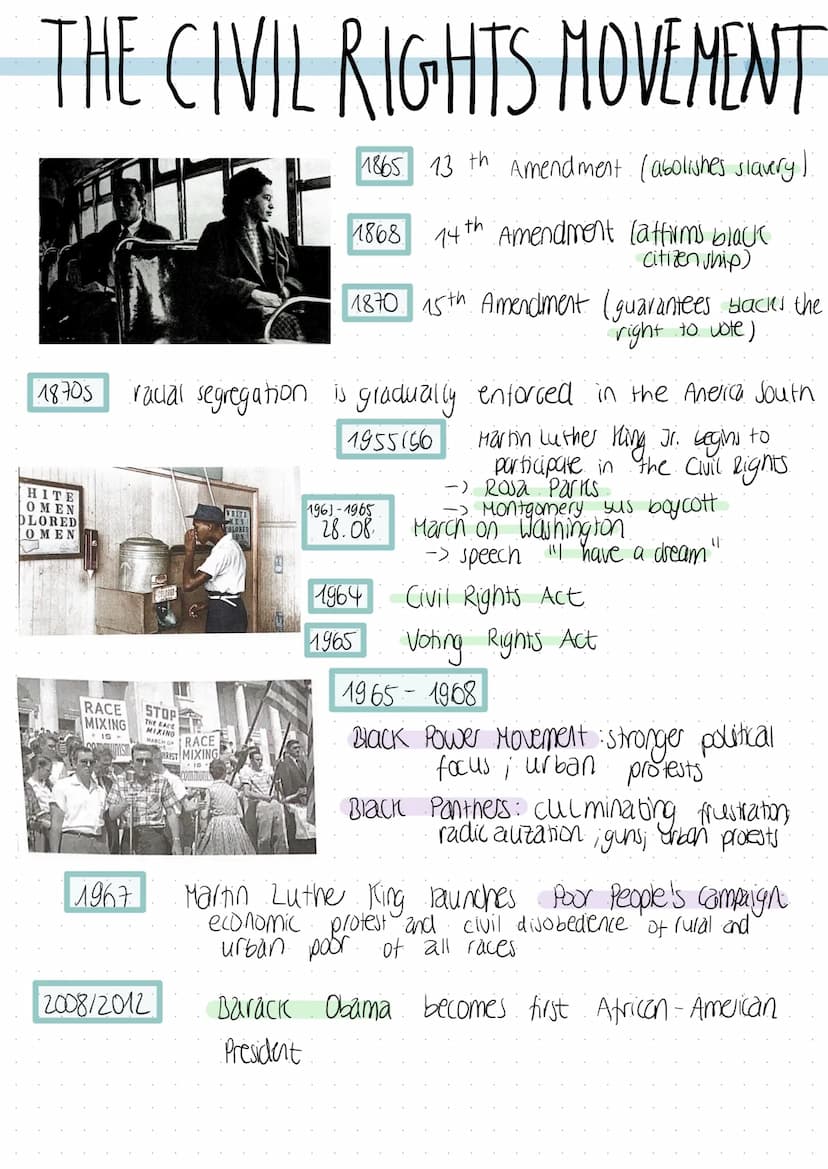 THE CIVIL RIGHTS MOVEMENT
1865 13th Amendment (abolishes slavery)
1868 14th Amendment (affirms black
citizenship)
1870 15th Amendment (guarantees blacks the
right to vote)
1870s racial segregation is gradually enforced in the America South
1955/56 Martin Luther King Jr. begins to
participate in the Civil Rights
-> Rosa Parks
-> Montgomery bus boycott
1963-1965
28.08. March on Washington
-> speech "I have a dream"
1964 Civil Rights Act
1965 Voting Rights Act
HITE
OMEN
OLORED
OMEN
1965 - 1968
RACE
MIXING
IS
COMMUNISM
STOP
THE RACE
MIXING
MARCH OF
RACE
MIXING
IS
Black Power Movement: stronger political
focus; urban protests
Black Panthers: culminating frustration;
radicalization; guns; urban protests
1967 Martin Luther King launches Poor People's Campaign
economic protest and civil disobedence of rural and
urban poor of all races
2008/2012 Barack Obama becomes first African-American
President